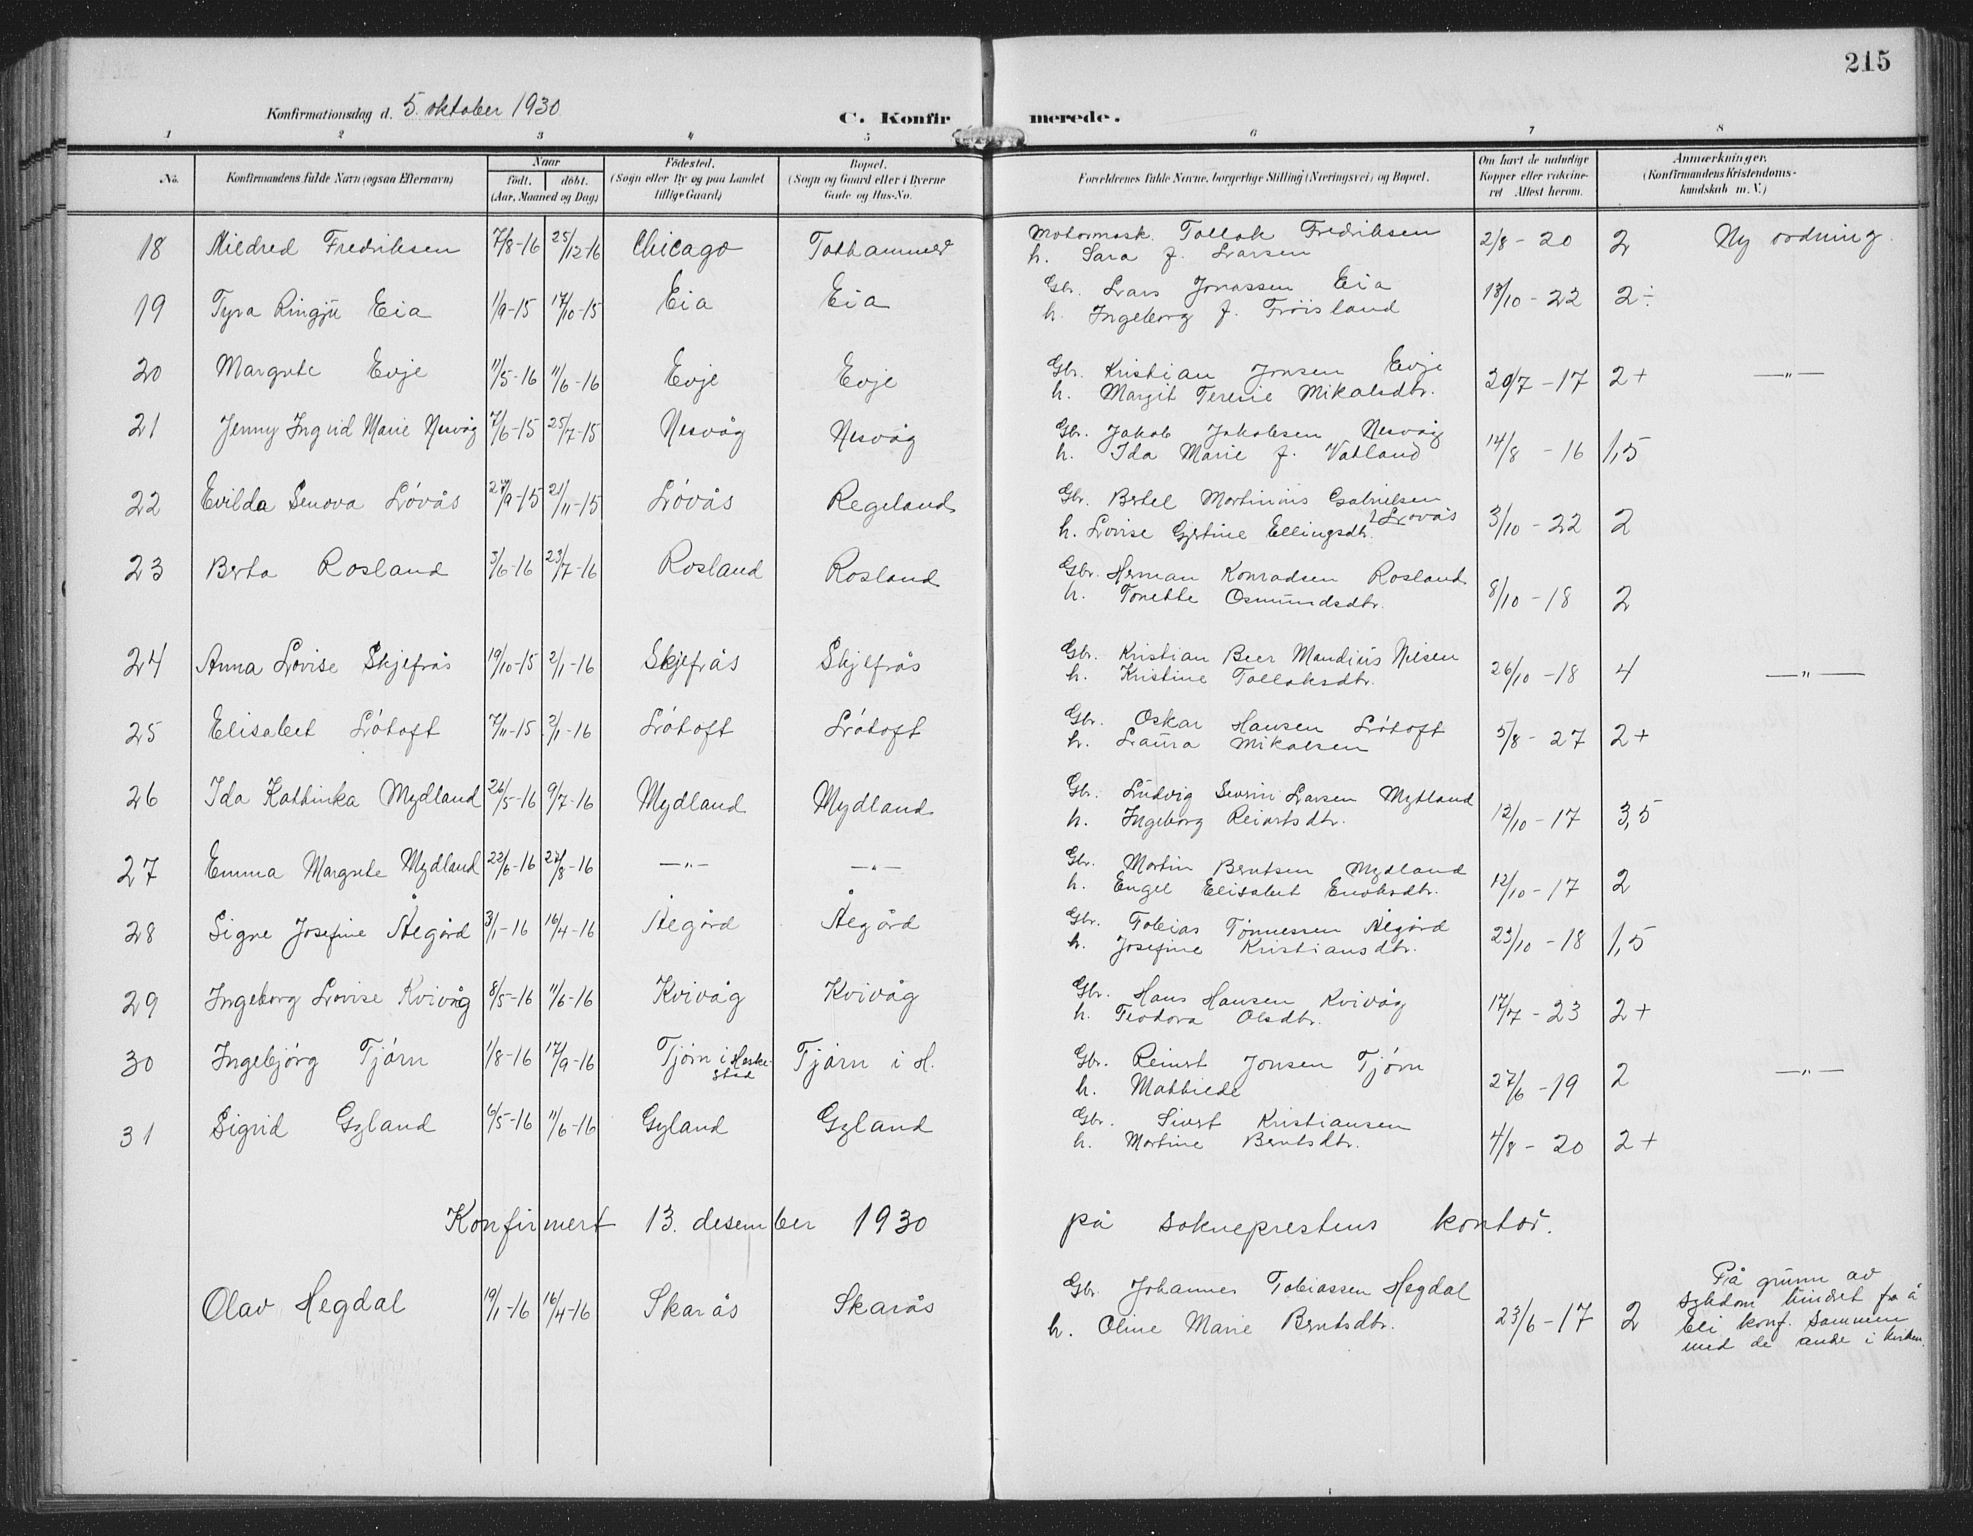 215
Konfirmationsdag d. 5. oktober 1930
C. Konfirmerede.
1 2 3 4 5 6 7 8
No. Konfirmandens fulde Navn (ogsaa Efternavn) Naar født. døbt. (Aar, Maaned og Dag) Fødested. (Sogn eller By og paa Landet tillige Gaard) Bopæl. (Sogn og Gaard eller i Byerne Gade og Hus-No. Forældrenes fulde Navne, borgerlige Stilling (Næringsvei) og Bopæl. Om havt de naturlige Kopper eller vakcineret Attest herom. Anmærkninger. (Konfirmandens Kristendomskundskab m. V.)
18 Mildred Fredriksen 7/8-16 25/12-16 Chicago Tothammer Motormask. Tollak Fredriksen 2/8-20 2 Ny ordning.
h. Sara f. Larsen
19 Tyra Ringju Eia 1/9-15 17/10-15 Eia Eia Gbr. Lars Jonassen Eia 13/10-22 2÷
h. Ingeborg f. Frøisland
20 Margrete Evje 11/5-16 11/6-16 Evje Evje Gbr. Kristian Jonsen Evje 20/7-17 2+ —"—
h. Margit Teresie Mikalsdtr.
21 Jenny Ingrid Marie Nesvåg 7/6-15 25/7-15 Nesvåg Nesvåg Gbr. Jakob Jakobsen Nesvåg 14/8-16 1,5
h. Ida Marie f. Vatland
22 Evilda Senova Løvås 27/9-15 21/11-15 Løvås Regeland Gbr. Bertel Martinius Gabrielsen Løvås 3/10-22 2
h. Lovise Gjertine Ellingsdtr.
23 Berta Rosland 3/6-16 23/7-16 Rosland Rosland Gbr. Herman Konradsen Rosland 8/10-18 2
h. Tonette Osmundsdtr.
24 Anna Lovise Skjefrås 19/10-15 2/1-16 Skjefrås Skjefrås Gbr. Kristian Beer Mandius Nilsen 26/10-18 4 —"—
h. Kristine Tollaksdtr.
25 Elisabet Løtoft 7/11-15 2/1-16 Løtoft Løtoft Gbr. Oskar Hansen Løtoft 5/8-27 2+
h. Laura Mikalsen
26 Ida Kathinka Mydland 26/5-16 9/7-16 Mydland Mydland Gbr. Ludvig Severin Larsen Mydland 12/10-17 3,5
h. Ingeborg Reiertsdtr.
27 Emma Margrete Mydland 22/6-16 27/8-16 —"— —"— Gbr. Martin Berntsen Mydland 12/10-17 2
h. Engel Elisabet Enoksdtr.
28 Signe Josefine Ålegård 3/1-16 16/4-16 Ålegård Ålegård Gbr. Tobias Tønnessen Ålegård 23/10-18 1,5
h. Josefine Kristiansdtr.
29 Ingeborg Lovise Kvivåg 8/5-16 11/6-16 Kvivåg Kvivåg Gbr. Hans Hansen Kvivåg 17/7-23 2+
h. Teodora Olsdtr.
30 Ingebjørg Tjørn 1/8-16 17/9-16 Tjørn i Heskestad Tjørn i H. Gbr. Reinert Jonsen Tjørn 27/6-19 2 —"—
h. Mathilde
31 Sigrid Gyland 6/5-16 11/6-16 Gyland Gyland Gbr. Sivert Kristiansen 4/8-20 2+
h. Martine Berntsdtr.
Konfirmert 13. desember 1930 på sokneprestens kontor.
Olav Hegdal 19/1-16 16/4-16 Skarås Skarås Gbr. Johannes Tobiassen Hegdal 23/6-17 2 På grunn av
h. Oline Marie Berntsdtr. sykdom hindret fra å
bli konf. sammen
med de andre i kirken.